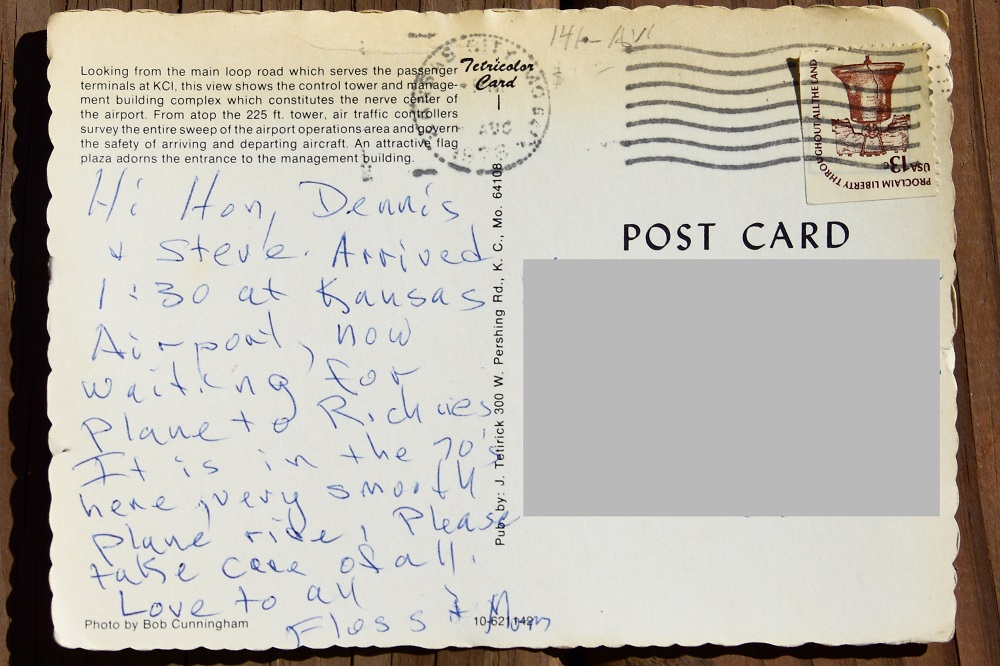 Looking from the main loop road which serves the passenger
terminals at KCI, this view shows the control tower and manage-
ment building complex which constitutes the nerve center of
the airport. From atop the 225 ft. tower, air traffic controllers
survey the entire sweep of the airport operations area and govern
the safety of arriving and departing aircraft. An attractive flag
plaza adorns the entrance to the management building.
Hi Hon, Dennis
& Steve. Arrived
1:30 at Kansas
Airport, now
waiting for
plane to Richies
It is in the 70's
here, very smooth
plane ride, Please
take care of all.
Love to all
Floss & Mum
Photo by Bob Cunningham
10-621142
Tetricolor
Card
Pub. by: J. Tetirick 300 W. Pershing Rd., K. C., Mo. 64108
AUG
PROCLAIM LIBERTY THROUGHOUT ALL THE LAND
USA 13c
POST CARD